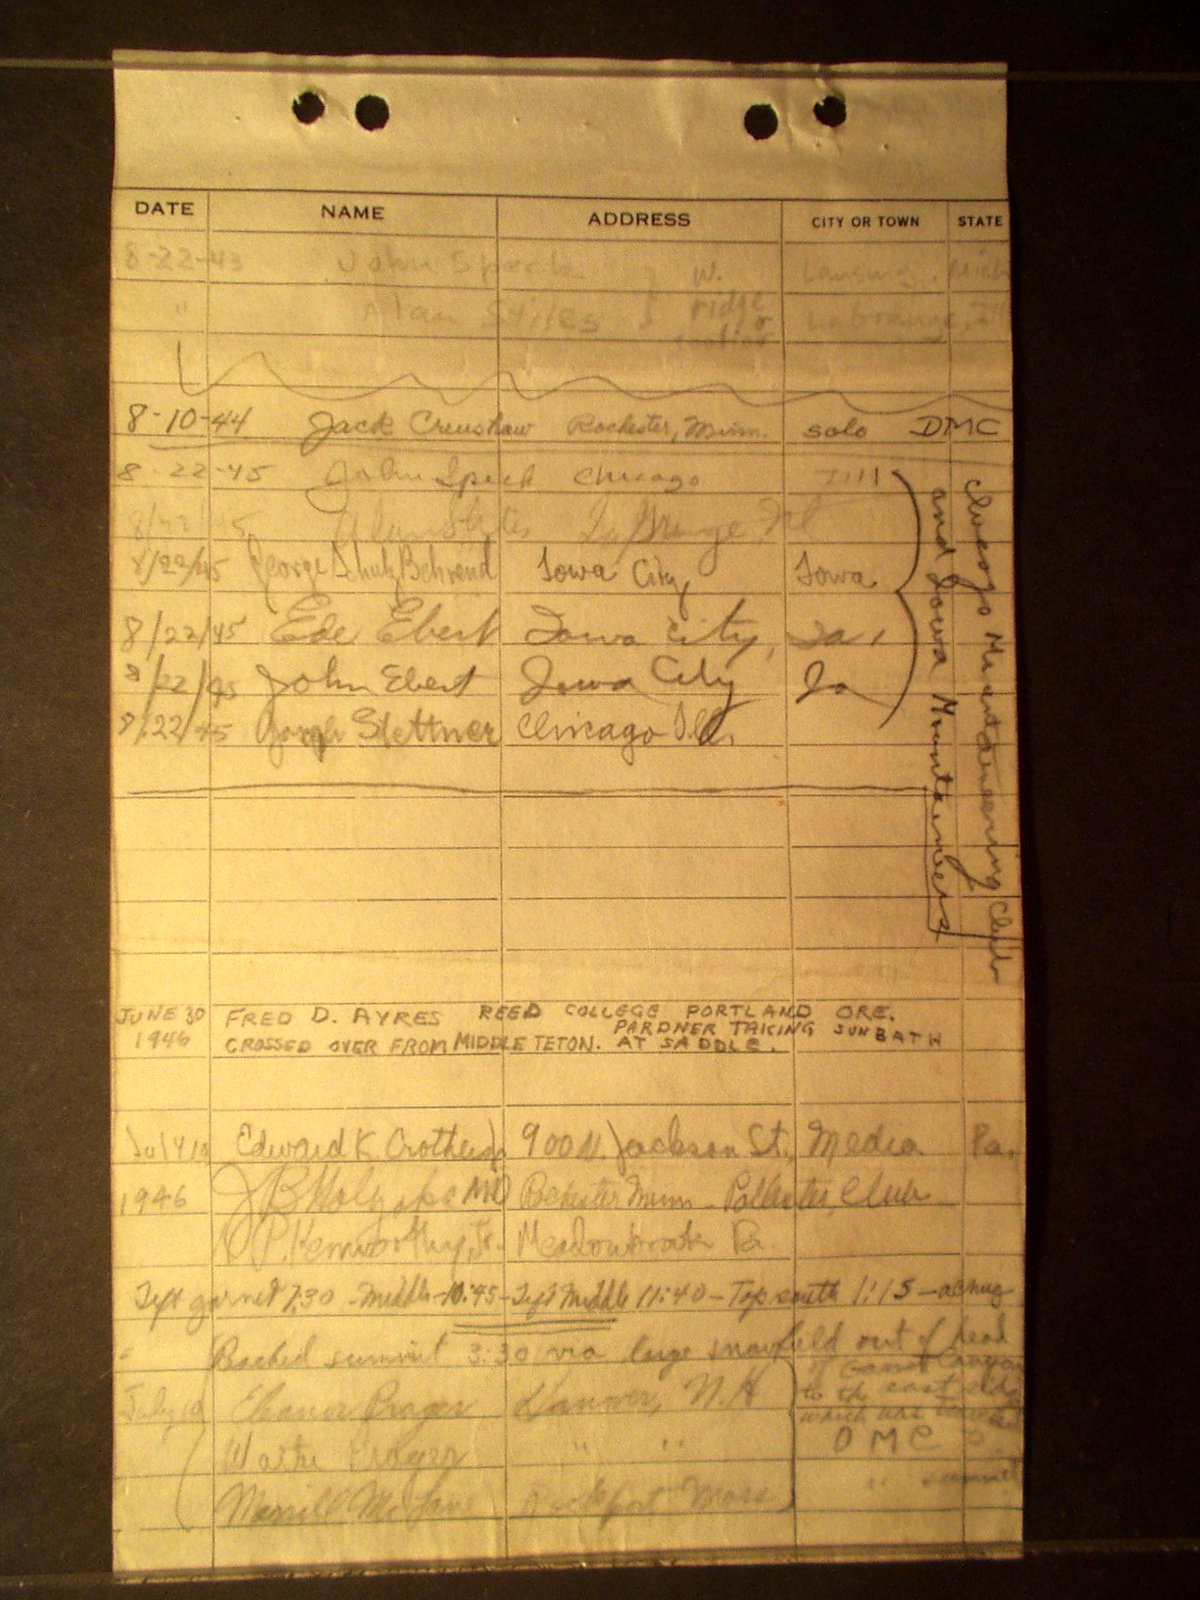 DATE NAME ADDRESS CITY OR TOWN STATE
8-22-43 John Speck } W. Lansing, Mich
" Alan Stiles } ridge LaGrange, Ill
8-10-44 Jack Crenshaw Rochester, Minn. solo DMC
8-22-45 John Speck Chicago
8/22/45 Alan Stiles LaGrange, Ill
8/22/45 George Schulz Behrend Iowa City Iowa
8/22/45 Ede Ebert Iowa City, Ia,
8/22/45 John Ebert Iowa City Ia
8/22/45 Joseph Stettner Chicago Ill.
Chicago Mountaineering Club
and Iowa Mountaineers
JUNE 30 FRED D. AYRES REED COLLEGE PORTLAND ORE.
1946 CROSSED OVER FROM MIDDLE TETON. PARDNER TAKING SUNBATH
AT SADDLE.
July 10 Edward K Crothers 900 N. Jackson St., Media Pa.
1946 MD Rochester Minn - Club
Kenworthy, Jr. Meadowbrook Pa
Left garnet 7:30 - Middle - 10:45 - Left Middle 11:40 - Top south 1:15 -
Reached summit 3:30 via large snowfield out of head
of Garnet Canyon
to the east ridge
which was
July 10 Eleanor Prager Hanover, N.H
Walter Prager " " DMC
Merrill McLane Rockport Mass " summit